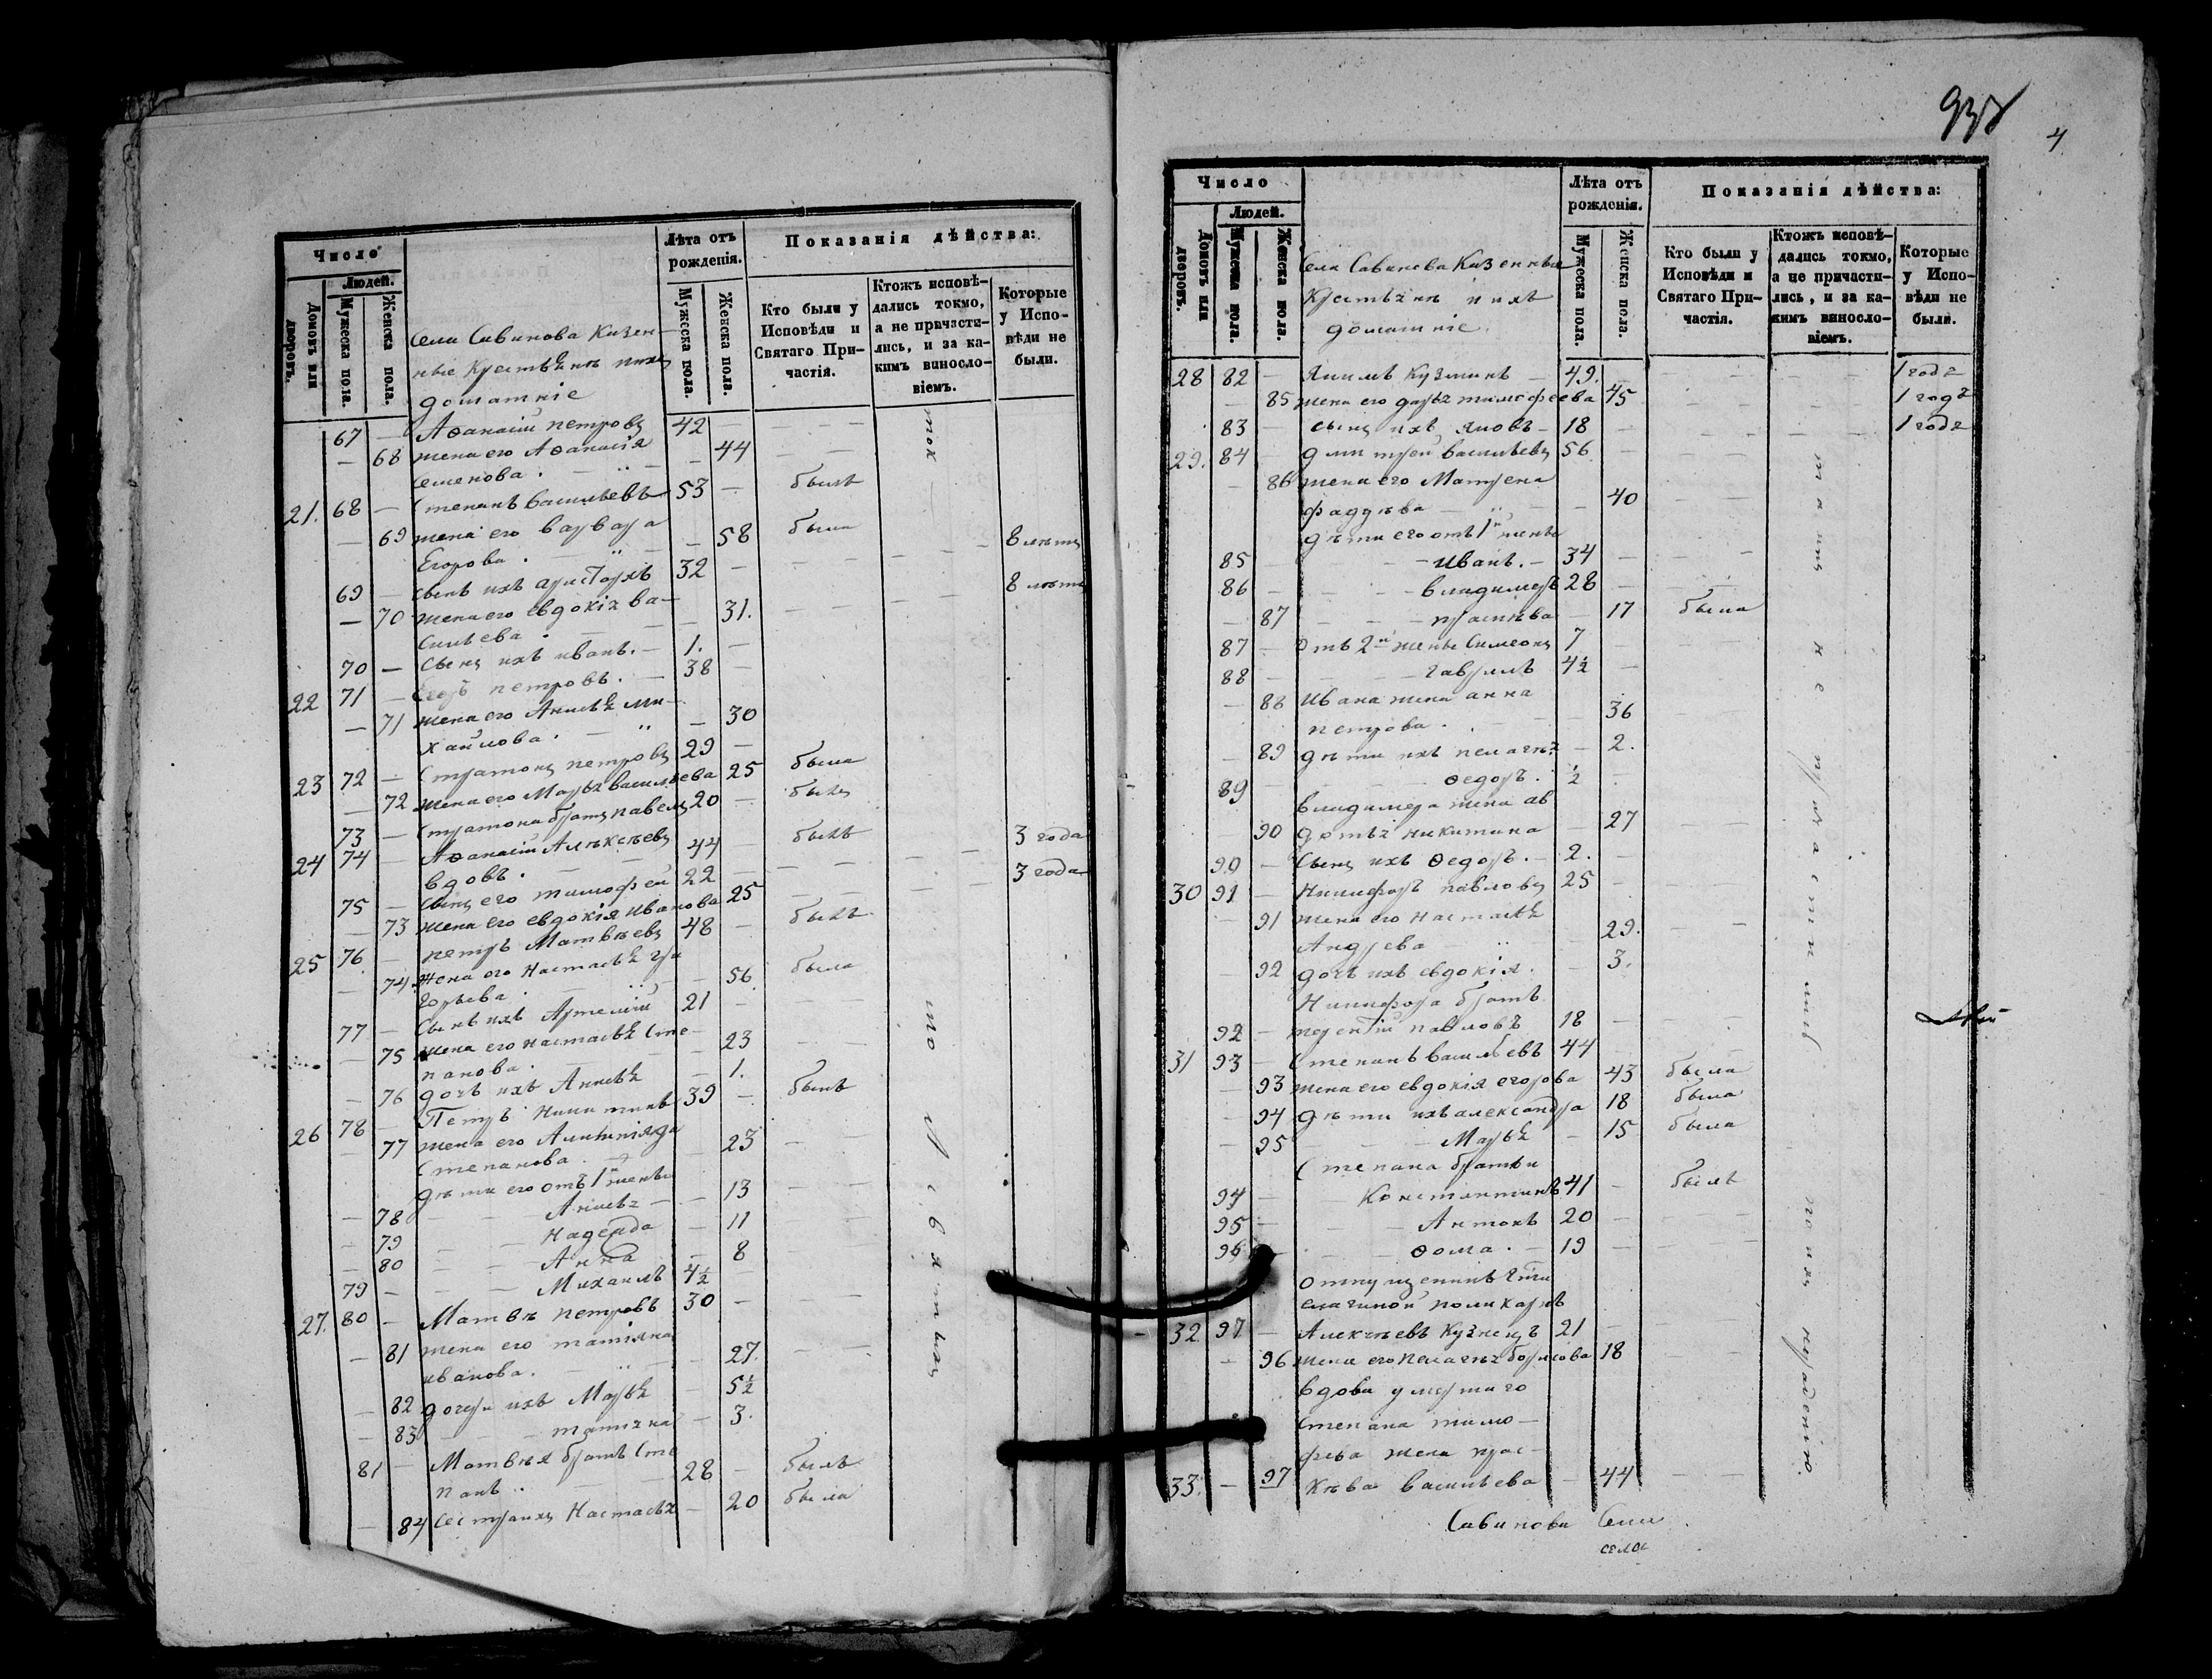 Число
Людей.
Домовъ или дворовъ.
Мужеска пола.
Женска пола.
Лѣта отъ рожденія.
Мужеска пола.
Женска пола.
Показанія дѣйства:
Кто были у Исповѣди и Святаго При-частія.
Ктожъ исповѣ-дались токмо, а не причасти-лись, и за ка-кимъ винослo-віемъ.
Которые у Испо-вѣди не были.
села Савинова Казен-
ные Крестьянѣ и ихъ
домашніе
67 — Аѳанасій петровъ 42 —
— 68 жена его Аѳанасія
семенова. — 44
21. 68 — Степанъ васильевъ 53 — былъ
— 69 жена его варвара
Егорова. — 58 была
69 — сынъ ихъ аристархъ 32 — 8 лѣтъ
— 70 жена его евдокія ва-
сильева. — 31. 8 лѣтъ
70 — сынъ ихъ иванъ. — 1. —
22 71 — Егоръ петровъ. — 38 —
— 71 жена его Анисья ми-
хайлова. — 30
23 72 — Стратонъ петровъ 29 —
— 72 жена его Марья васильева 25 была
73 — Стратона братъ павелъ 20 — былъ
24 74 — Аѳанасій Алѣксѣевъ
вдовъ. 44 — былъ
75 — сынъ его тимофей 22 — 3 года
— 73 жена его евдокія иванова 25 3 года
25 76 — петръ Матвѣевъ 48 — былъ
— 74. жена его Настасья гри
горьева. — 56. была
77 — сынъ ихъ Артемій 21 —
— 75 жена его настасья сте-
панова. — 23
— 76 дочь ихъ Анисья — 1.
26 78 — Петръ Никитинъ 39 — былъ
— 77 жена его
Степанова — 23
дѣти его отъ 1й жены
— 78 — Анисья — 13
— 79 — Надежда — 11
— 80 — Анна — 8
79 — Михаилъ 4½ —
27. 80 — Матвѣй петровъ 30 —
— 81 жена его татіяна
иванова. — 27.
— 82 дочери ихъ Марья — 5½
— 83 — татіяна — 3.
81 — Матвѣя братъ Сте
панъ. 28 — былъ
— 84 сестра ихъ Настасья — 20 была
938
4
Число
Людей.
Домовъ или дворовъ.
Мужеска пола.
Женска пола.
Лѣта отъ рожденія.
Мужеска пола.
Женска пола.
Показанія дѣйства:
Кто были у Исповѣди и Святаго При-частія.
Ктожъ исповѣ-дались токмо, а не причасти-лись, и за ка-кимъ винослo-віемъ.
Которые у Испо-вѣди не были.
Села Савинова Казенные
Крестьянѣ и ихъ
домашніе.
28 82 — Якимъ Кузминъ — 49. — 1 годъ
— 85 жена его дарья тимофеева 45 1 годъ
83 — сынъ ихъ яковъ — 18 — 1 годъ
29. 84 — дмитрей васильевъ 56. —
— 86 жена его Матрена
фаддѣва — 40
дѣти его отъ 1й жены
85 — Иванъ. — 34 —
86 — владимеръ 28 —
— 87 — прасковья — 17 была
87 — Отъ 2й жены Симеонъ 7 —
88 — гаврилъ 4½ —
— 88 Ивана жена анна
петрова. — 36
— 89 дѣти ихъ пелагѣя — 2.
89 — ѳедоръ. ½ —
владимера жена ав
— 90 дотья никитина — 27
90 — Сынъ ихъ Ѳедоръ. — 2. —
30 91 — Никифоръ павловъ 25 —
— 91 жена его настасья
Андрева — 29.
— 92 дочь ихъ евдокія. — 3.
Никифора братъ
92 — терентій павловъ 18 —
31 93 — Степанъ васильевъ 44 —
— 93 жена его евдокія егорова 43 была
— 94 дѣти ихъ александра 18 была
— 95 — Марья — 15 была
Степана братьи
94 — Константинъ 41 — былъ
95 — Антонъ 20 —
96 — Ѳома. — 19 —
отпущенникъ г̃жи
поликарпъ
32 97 — Алексѣевъ Кузнецъ 21 —
— 96 жена его пелагѣя борисова 18
вдова умершаго
степана тимо—
фева жена прас—
33. — 97 ковья васильева — 44
Савинова Села
села